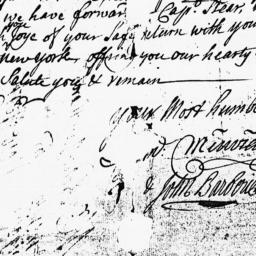 we have forwar Capt. Stear,
Joye of your safe return with your
new York offring you our hearty
Salute you & remain
your Most humb
& John Barbone